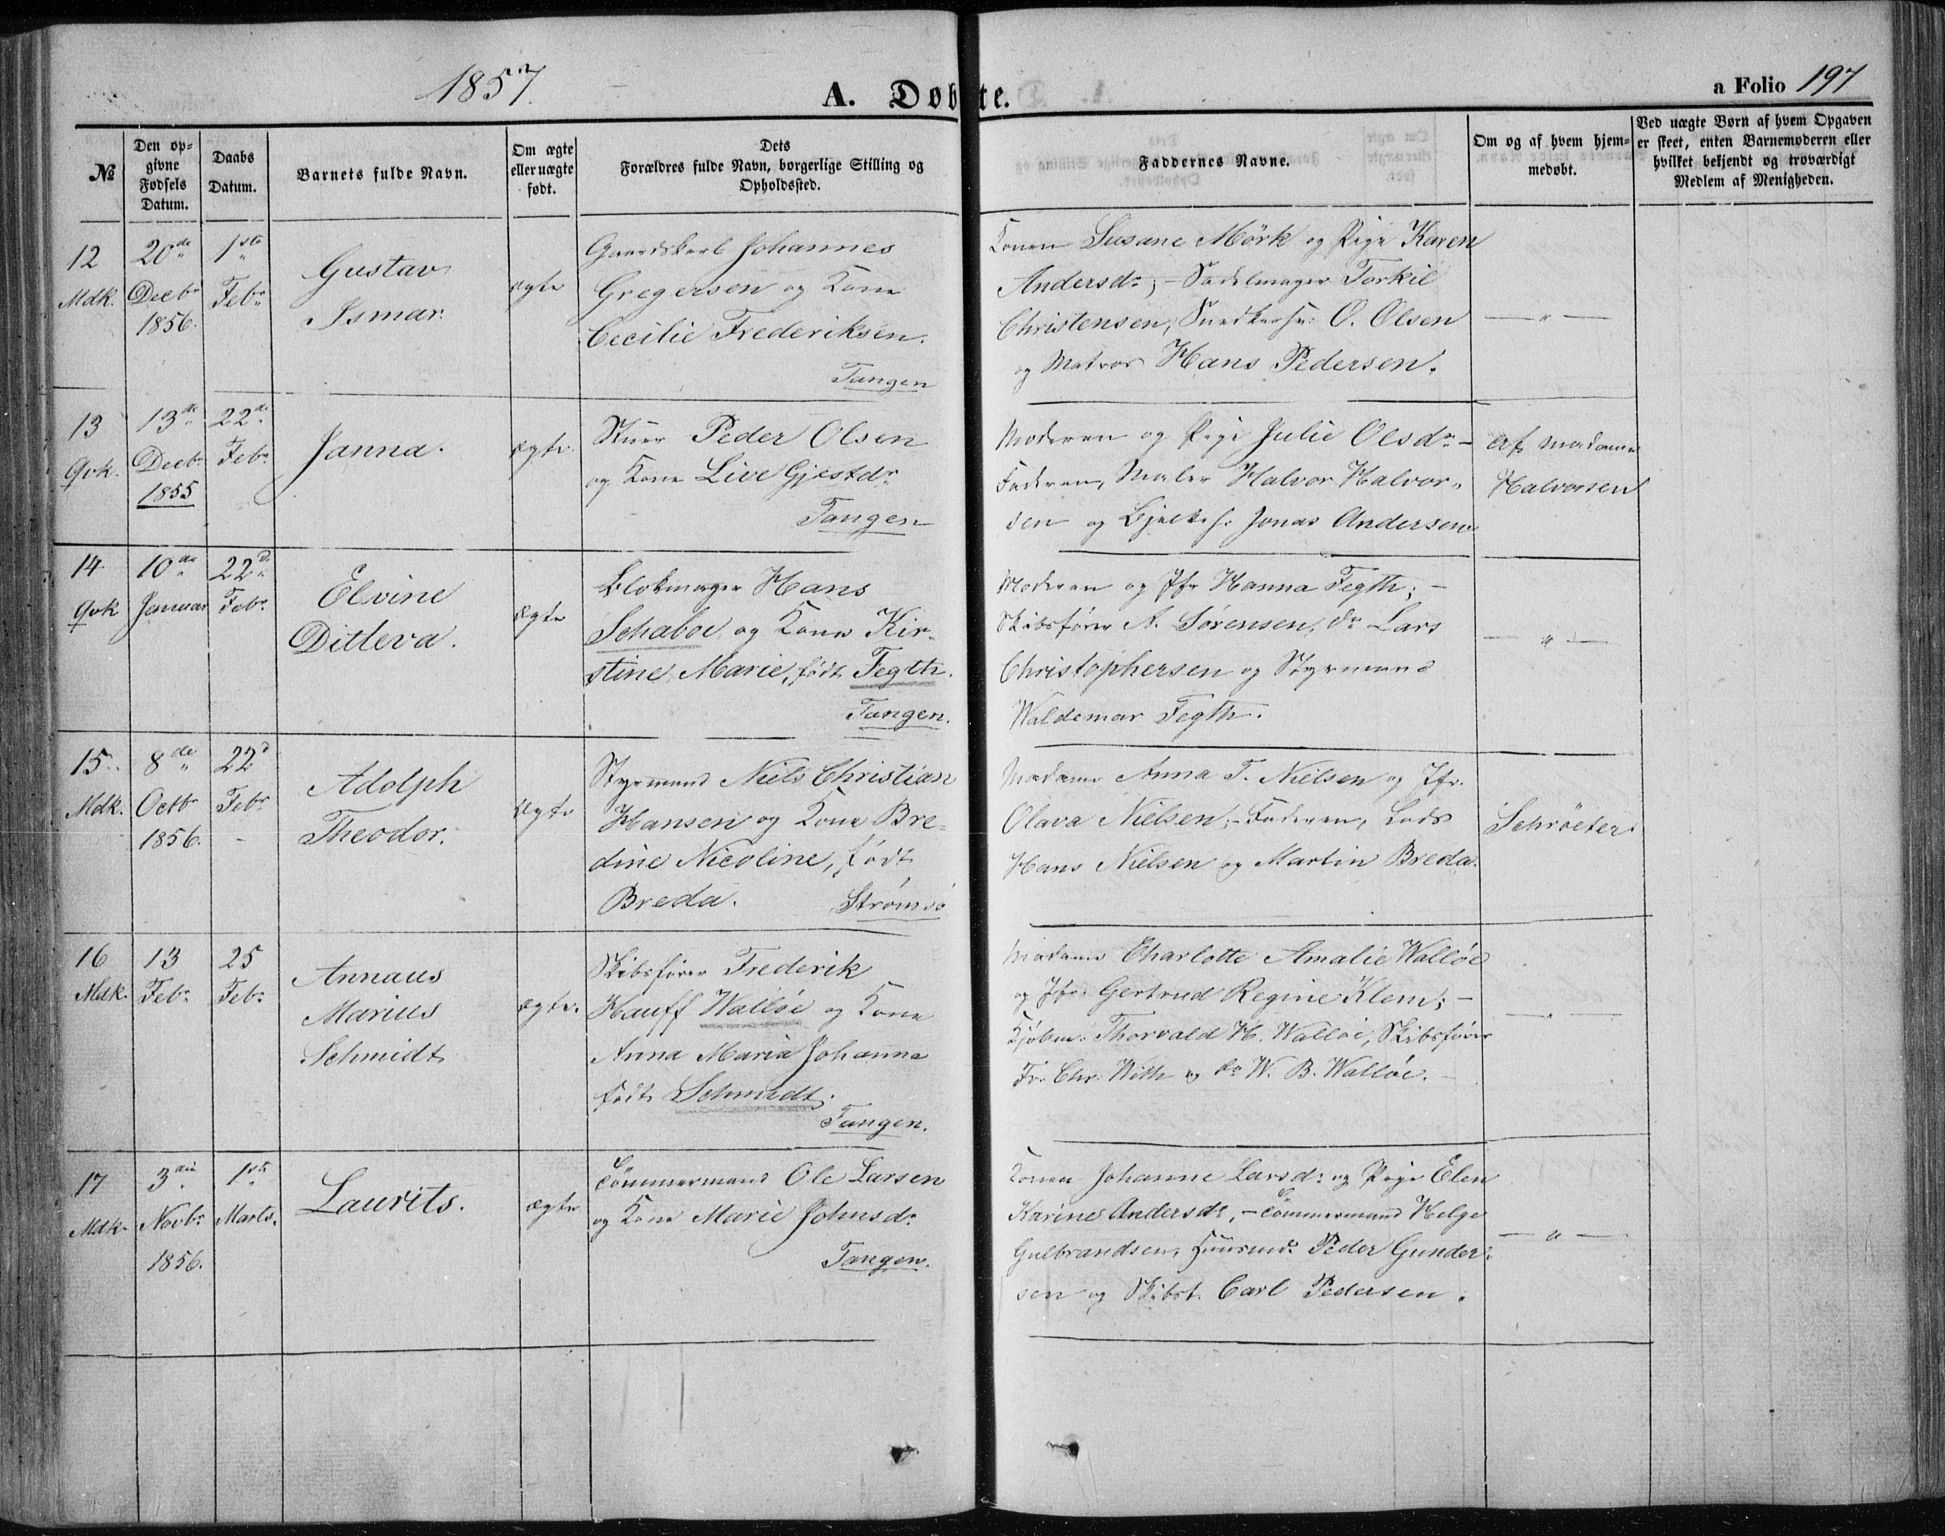 1857.
A. Døbte.
a Folio 197
№
Den op-
givne
Fødsels
Datum.
Daabs
Datum.
Barnets fulde Navn.
Om ægte
eller uægte
født.
Dets
Forældres fulde Navn, borgerlige Stilling og
Opholdssted.
Faddernes Navne.
Om og af hvem hjem-
medøbt.
Ved uægte Børn af hvem Opgaven
er skeet, enten Barnemoderen eller
hvilket bekjendt og troværdigt
Medlem af Menigheden.
12
Mdk.
20de
Decbr
1856.
1ste
Febr.
Gustav
Ismar.
ægte
Gaardskarl Johannes
Gregersen og Kone
Cecilie Frederiksen.
Tangen
Konen Susane Mörk og Pige Karen
Andersdr; – Sadelmager Torkil
Christensen, Snedkersv. O. Olsen
og Matros Hans Pedersen.
— „ —
13
Qvk.
13de
Decbr
1855
22de
Febr.
Janna.
ægte.
Stuer Peder Olsen
og Kone Live Gjestdr
Tangen
Moderen og Pige Julie Olsdr –
Faderen, Maler Halvor Halvor-
sen og Bjelkeh. Jonas Andersen.
af Madame
Halvorsen
14
Qvk
10de
Januar
22d
Febr.
Elvine
Ditleva.
ægte
Blokmager Hans
Schaboe og Kone Kir-
stine Marie, født Fegth.
Tangen.
Moderen og Jfr Hanna Fegth; –
Skibsfører A. Sørensen, do Lars
Christophersen og Styrmand
Waldemar Fegth.
— „ —
15.
Mdk.
8de
Octbr
1856.
22d
Febr
–
Adolph
Theodor.
ægte
Styrmand Niels Christian
Hansen og Kone Bre-
dine Nicoline, født
Breda. Strømsö
Madame Anna T. Nielsen og Jfr.
Olava Nielsen; – Faderen, Lods
Hans Nielsen og Martin Breda.
Schröeter
16
Mdk.
13
Febr.
25
Febr.
Annaus
Marius
Schmidt
ægte.
Skibsfører Frederik
Hauff Walløe og Kone
Anna Maria Johanna
født Schmidt.
Tangen.
Madame Charlotte Amalie Walløe
og Jfr: Gertrud Regine Klem; –
Kjøbm: Thorvald H. Walløe, Skibsfører
Fr. Chr. With og do W. B. Walløe. –
— „ —
17
Mdk.
3die
Novbr
1856.
1ste
Marts.
Laurits.
ægte
Tömmermand Ole Larsen
og Kone Marie Johnsdr
Tangen.
Konen Johanne Larsd: og Pige Elen
Karine Andersdr, – Tömmermand Helge
Gulbrandsen, Huusmd. Peder Gunder-
sen og Skibst. Carl Pedersen.
— „ —